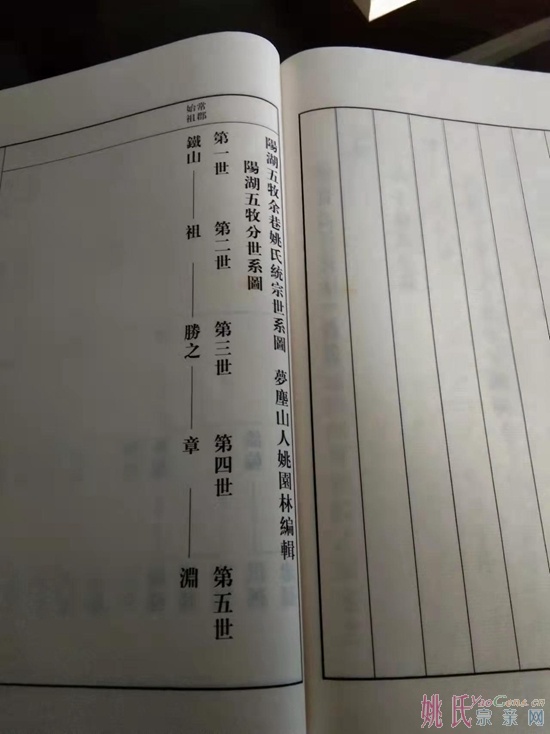 陽湖五牧余巷姚氏統宗世系圖 夢塵山人姚園林編輯
陽湖五牧分世系圖
第一世 第二世 第三世 第四世 第五世
常郡
始祖
鐵山——祖——勝之——章——淵
姚氏宗亲网
YaoGens.cn